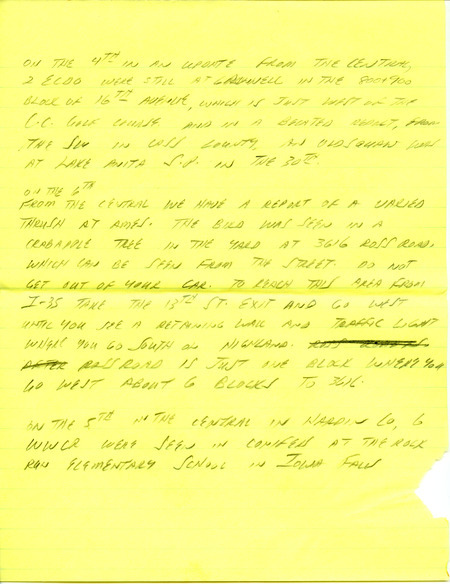 ON THE 4TH IN AN UPDATE FROM THE CENTRAL,
2 ECDO WERE STILL AT GRINNELL IN THE 800+900
BLOCK OF 16TH AVENUE, WHICH IS JUST WEST OF THE
C.C. GOLF COURSE AND IN A BELATED REPORT, FROM
THE SW IN CASS COUNTY, AN OLDSQUAW WAS
AT LAKE ANITA S.P. IN THE 30TH.
ON THE 6TH
FROM THE CENTRAL WE HAVE A REPORT OF A VARIED
THRUSH AT AMES. THE BIRD WAS SEEN IN A
CRABAPPLE TREE IN THE YARD AT 3616 ROSS ROAD.
WHICH CAN BE SEEN FROM THE STREET. DO NOT
GET OUT OF YOUR CAR. TO REACH THIS AREA FROM
I-35 TAKE THE 13TH ST. EXIT AND GO WEST
UNTIL YOU SEE A RETAINING WALL AND TRAFFIC LIGHT
WHERE YOU GO SOUTH ON HIGHLAND.
ROSS ROAD IS JUST ONE BLOCK WHERE YOU
GO WEST ABOUT 6 BLOCKS TO 3616.
ON THE 5TH IN THE CENTRAL IN HARDIN CO, 6
WWCR WERE SEEN IN CONIFERS AT THE ROCK
RUN ELEMENTARY SCHOOL IN IOWA FALLS